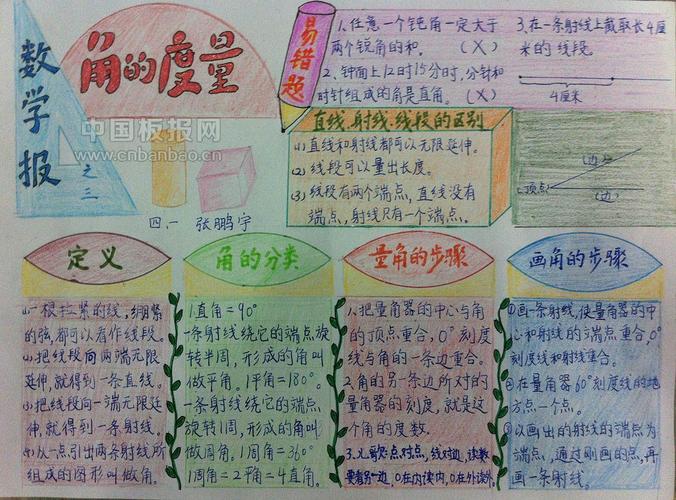 数学报
之三
角的度量
中国板报网
www.cnbanbao.cn
四.一 张鹏宇
易错题
1、任意一个钝角一定大于
两个锐角的和。 (X)
2、钟面上12时15分时,分针和
时针组成的角是直角。 (X)
3、在一条射线上截取长4厘
米的线段。
4厘米
直线、射线、线段的区别
(1) 直线和射线都可以无限延伸。
(2) 线段可以量出长度。
(3) 线段有两个端点,直线没有
端点,射线只有一个端点。
(边)
顶点
(边)
定义
(1)一根拉紧的线,绷紧
的弦,都可以看作线段。
(2)把线段向两端无限
延伸,就得到一条直线。
(3)把线段向一端无限延
伸,就得到一条射线。
(4)从一点引出两条射线所
组成的图形叫做角。
角的分类
1直角=90°
一条射线绕它的端点旋
转半周,形成的角叫
做平角。1平角=180°。
一条射线绕它的端点
旋转1周,形成的角叫
做周角。1周角=360°
1周角=2平角=4直角。
量角的步骤
1、把量角器的中心与角
的顶点重合,0°刻度
线与角的一条边重合。
2、角的另一条边所对的
量角器的刻度,就是这
个角的度数。
3、儿歌:点对点,线对边,读数
要看另一边,0在内读内,0在外读外。
画角的步骤
①画一条射线,使量角器的中
心和射线的端点重合,0°
刻度线和射线重合。
②在量角器60°刻度线的地
方点一个点。
③以画出的射线的端点为
端点,通过刚画的点,再
画一条射线。